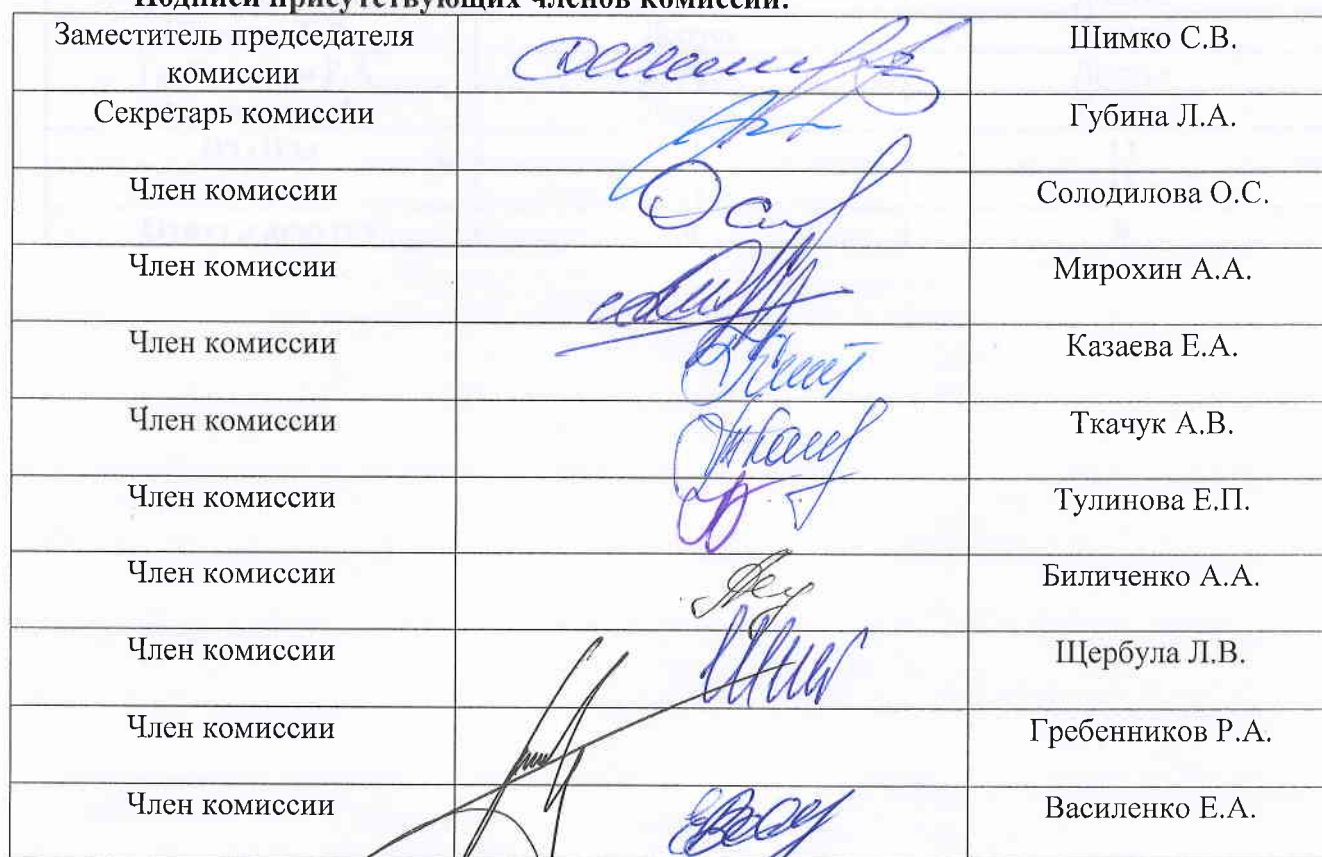 Подписи присутствующих членов комиссии:
Заместитель председателя
комиссии
Шимко С.В.
Секретарь комиссии
Губина Л.А.
Член комиссии
Солодилова О.С.
Член комиссии
Мирохин А.А.
Член комиссии
Казаева Е.А.
Член комиссии
Ткачук А.В.
Член комиссии
Тулинова Е.П.
Член комиссии
Биличенко А.А.
Член комиссии
Щербула Л.В.
Член комиссии
Гребенников Р.А.
Член комиссии
Василенко Е.А.